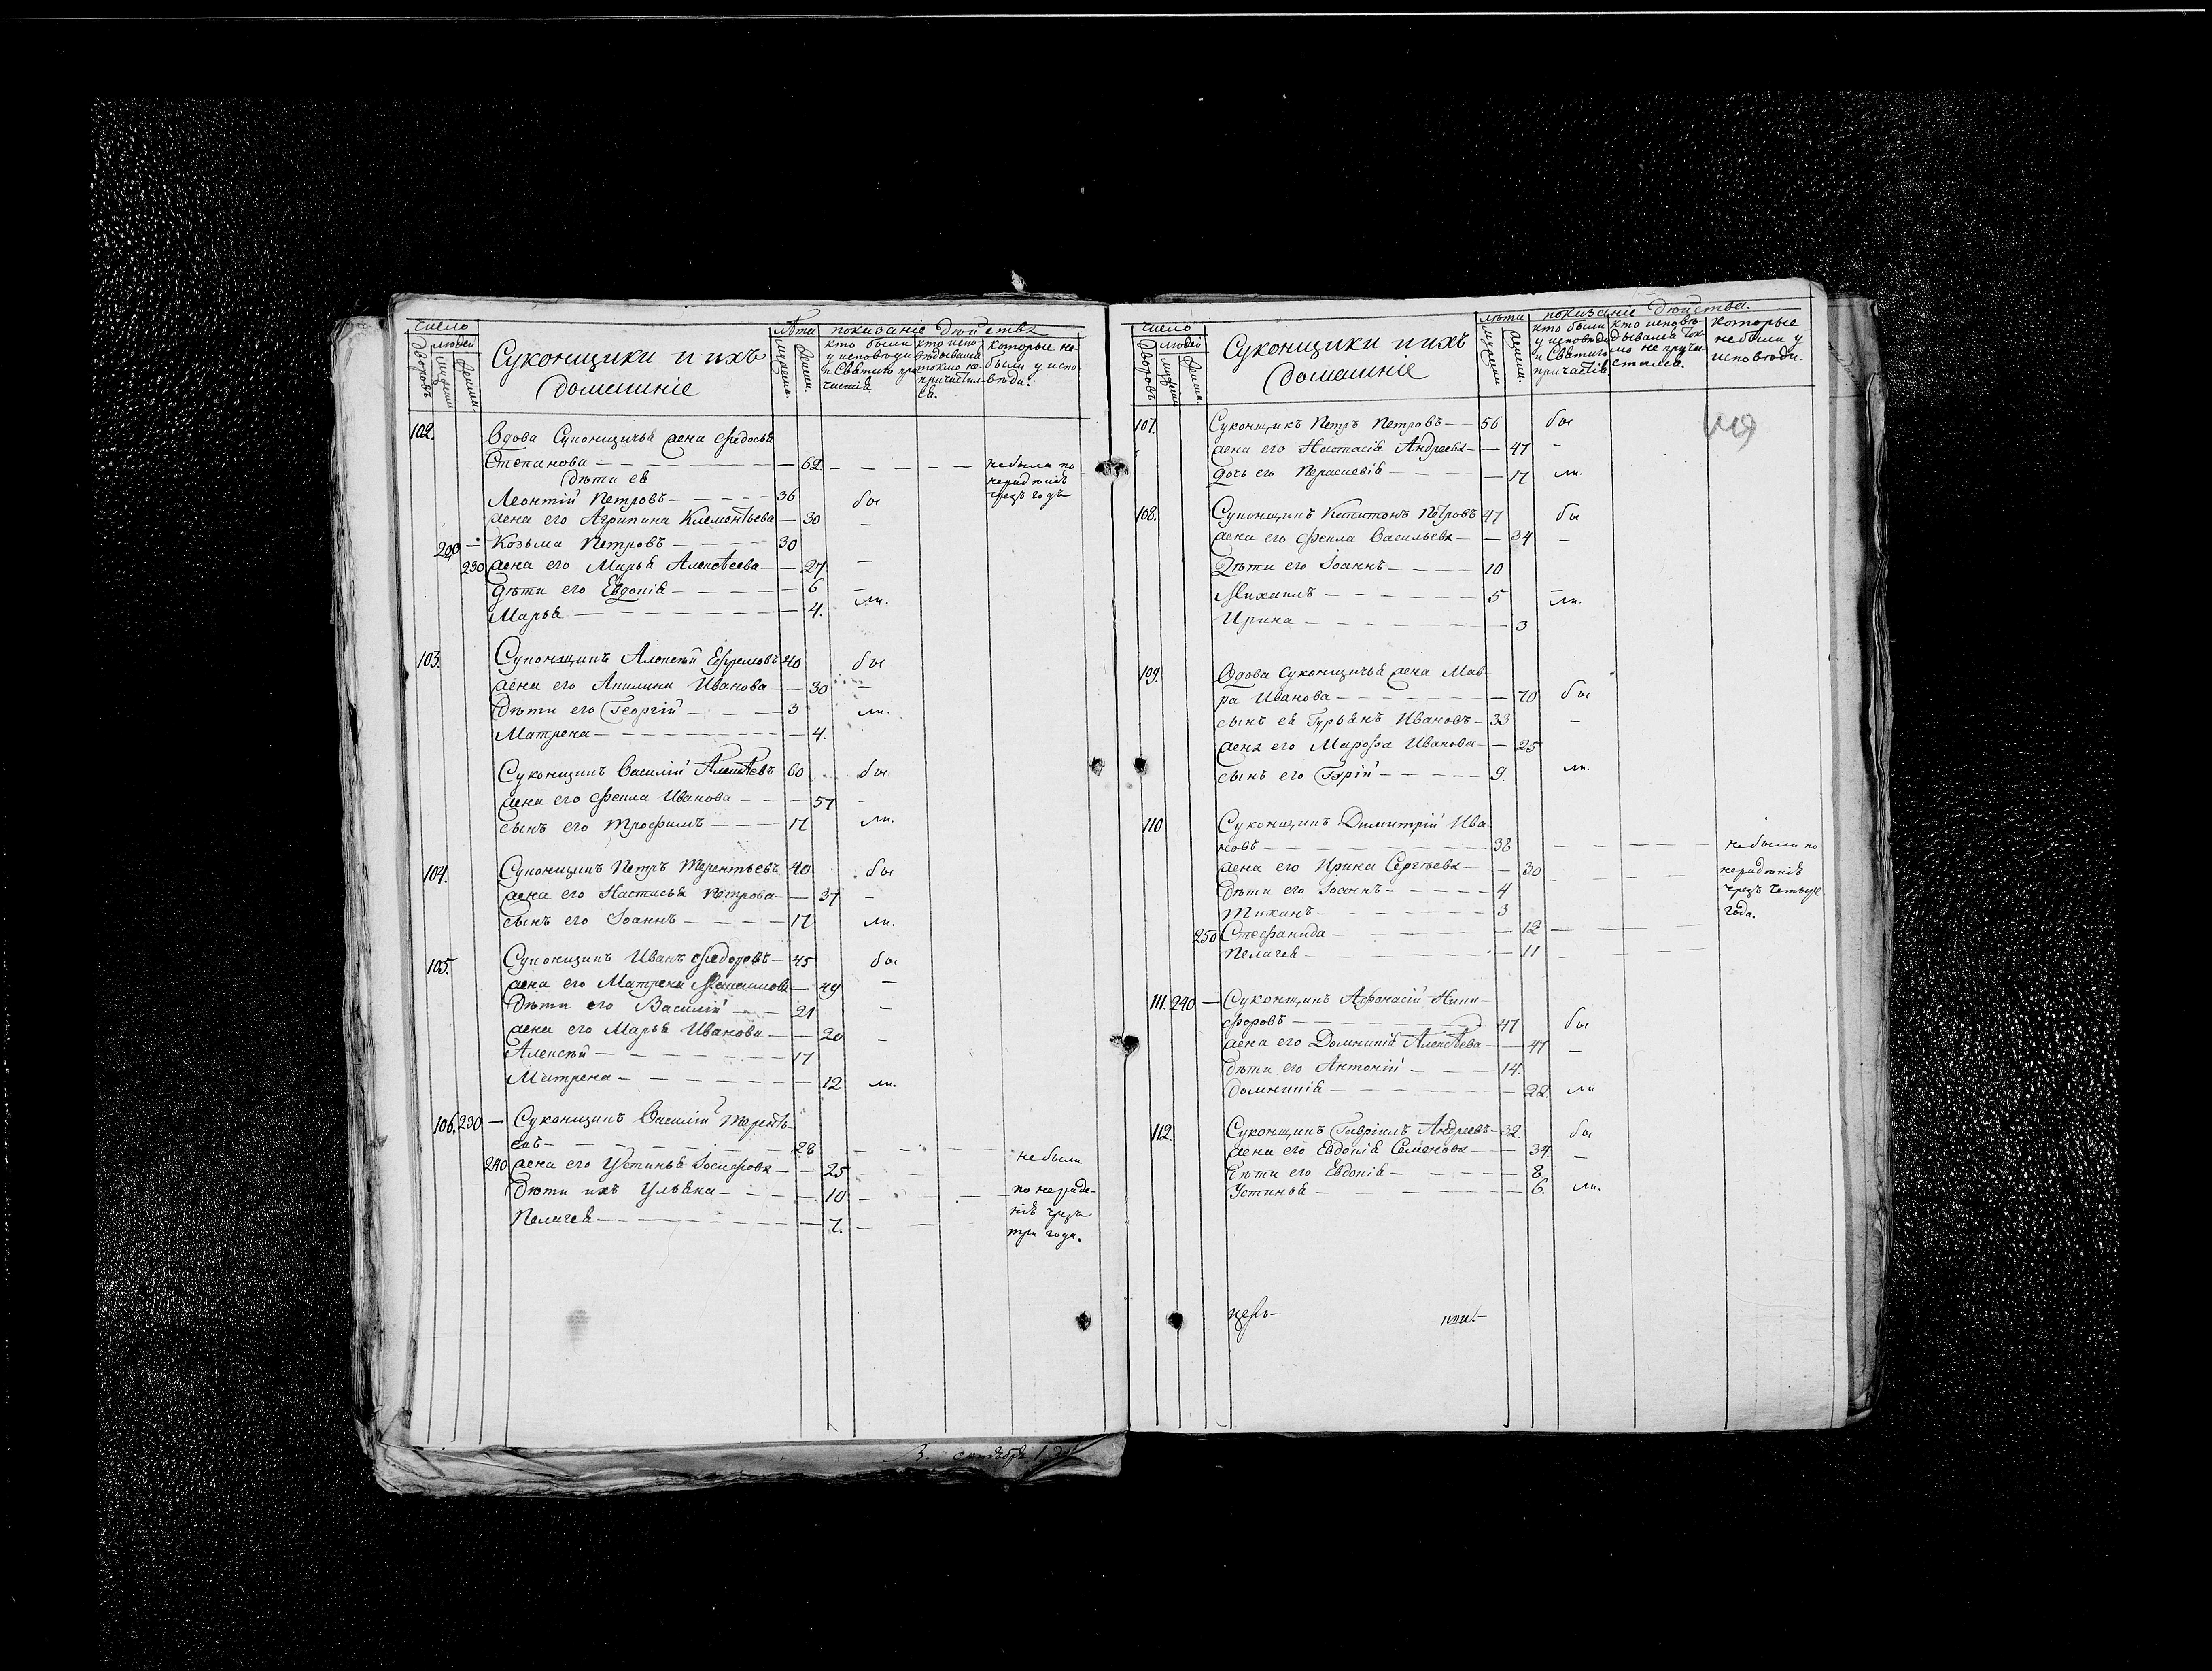 число
лѣта показаніе дѣйства
Дворовъ людей мужеска женска
Суконщики и ихъ
домашніе
мужеска женска
кто были у исповѣди и Святаго причастія
кто исповѣдывался токмо не причастился.
которые не были у исповѣди.
102. Вдова Суконщичья жена Федосья
Степанова — 62. — — — — не были по
дѣти ея нерадѣнію
Леонтій Петровъ — 36 бы чрезъ годъ
жена его Агрипина Клементьева — 30 —
Козьма Петровъ — 30
230 жена его Марья Алексѣева — 27 —
дѣти его Евдокія — 6 —
Марья — 4. ли.
103. Суконщикъ Алексѣй Ефремовъ 40 бы
жена его Акилина Иванова — 30 —
дѣти его Георгій — 3 ли.
Матрена — 4.
Суконщикъ Василій Алексѣевъ 60 бы
жена его Фекла Иванова — 57 -
сынъ его Трофимъ — 17 ли.
104. Суконщикъ Петръ Терентьевъ 40 бы
жена его Настасья Петрова — 37 -
сынъ его Іоаннъ — 17 ли.
105. Суконщикъ Иванъ Федоровъ — 45 бы
жена его Матрена — 49 —
дѣти его Василій — 21 —
жена его Марья Иванова — 20 —
Алексѣй — 17
Матрена — 12. ли.
106. 230 — Суконщикъ Василій Терентъ-
евъ — 28 — — — не были
240 жена его Устинья Іосифова — 25
дѣти ихъ Ульяна — 10 — — по нераде-
нію чрезъ
Пелагея — 7. — — три года.
число
лѣта показаніе дѣйства.
Дворовъ людей мужеска женска
Суконщики и ихъ
домашніе
мужеска женска.
кто были у исповѣди и Святаго причастія
кто исповѣдывался токмо не причастился.
которые не были у исповѣди.
107. Суконщикъ Петръ Петровъ — 56 бы
жена его Настасія Андреева — 47 -
дочь его Парасцевія — 17 ли.
108. Суконщикъ Капитонъ Петровъ 47 бы
жена его Фекла Васильева — 34 —
Дѣти его Іоаннъ — 10
Михаилъ — 5 ли.
Ирина — 3
109. Вдова Суконщичья жена Мав-
ра Иванова — 70 бы
сынъ ея Гурьянъ Ивановъ — 33 —
жена его Марфа Иванова — 25
сынъ его Гурій — 9. ли.
110 Суконщикъ Димитрій Ива-
новъ — 38 — — — — не были по
жена его Ирина Сергѣева — 30 — — — нерадѣнію
дѣти его Іоаннъ — 4 чрезъ четыре
Тихонъ — 3 года.
250 Стефанида — 12 — —
Пелагея — 11 — — —
111. 240 — Суконщикъ Афонасій Ники-
форовъ — 47 бы
жена его Домникія Алексѣева — 47 —
дѣти его Антоній — 14.
Домникія — 22. ли
112. Суконщикъ Гавріилъ Андреевъ — 32. бы
жена его Евдокія Семенова — 34. —
дѣти его Евдокія — 8
Устинья — 6. ли.